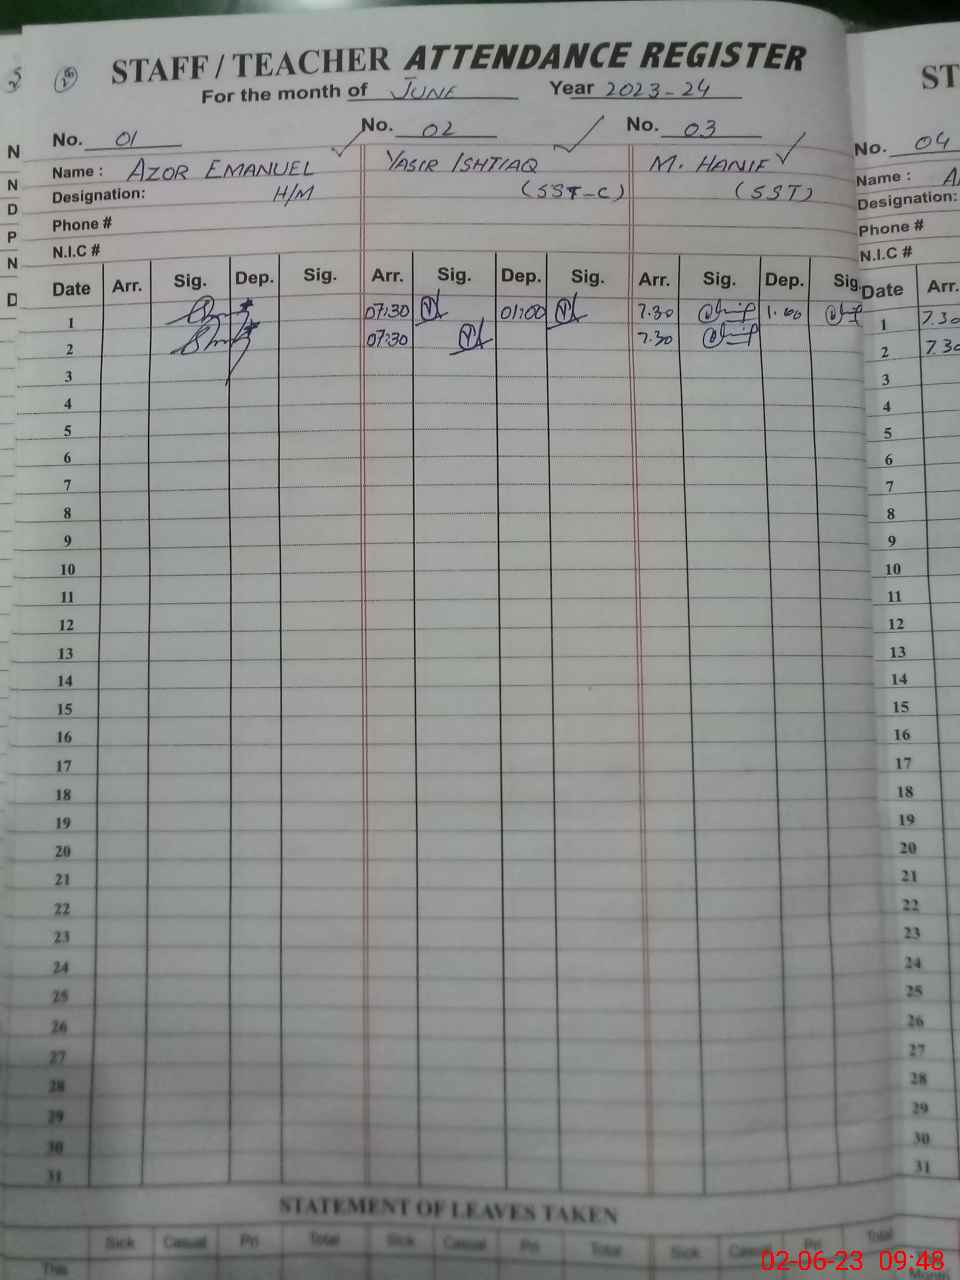 STAFF / TEACHER ATTENDANCE REGISTER
For the month of JUNE Year 2023-24
No. 01 No. 02 No. 03
Name : AZOR EMANUEL YASIR ISHTIAQ M. HANIF
Designation: H/M (SST-C) (SST)
Phone #
N.I.C #
Date Arr. Sig. Dep. Sig. Arr. Sig. Dep. Sig. Arr. Sig. Dep. Sig.
1 07:30 01:00 7.30 1.00
2 07:30 7.30
3
4
5
6
7
8
9
10
11
12
13
14
15
16
17
18
19
20
21
22
23
24
25
26
27
28
29
30
31
STATEMENT OF LEAVES TAKEN
Sick Casual Pri Total Sick Casual Pri Total Sick Casual Pri Total
This
ST
No. 04
Name : A
Designation:
Phone #
N.I.C #
Date Arr.
1 7.30
2 7.30
3
4
5
6
7
8
9
10
11
12
13
14
15
16
17
18
19
20
21
22
23
24
25
26
27
28
29
30
31
Month
N
N
D
P
N
D
02-06-23 09:48